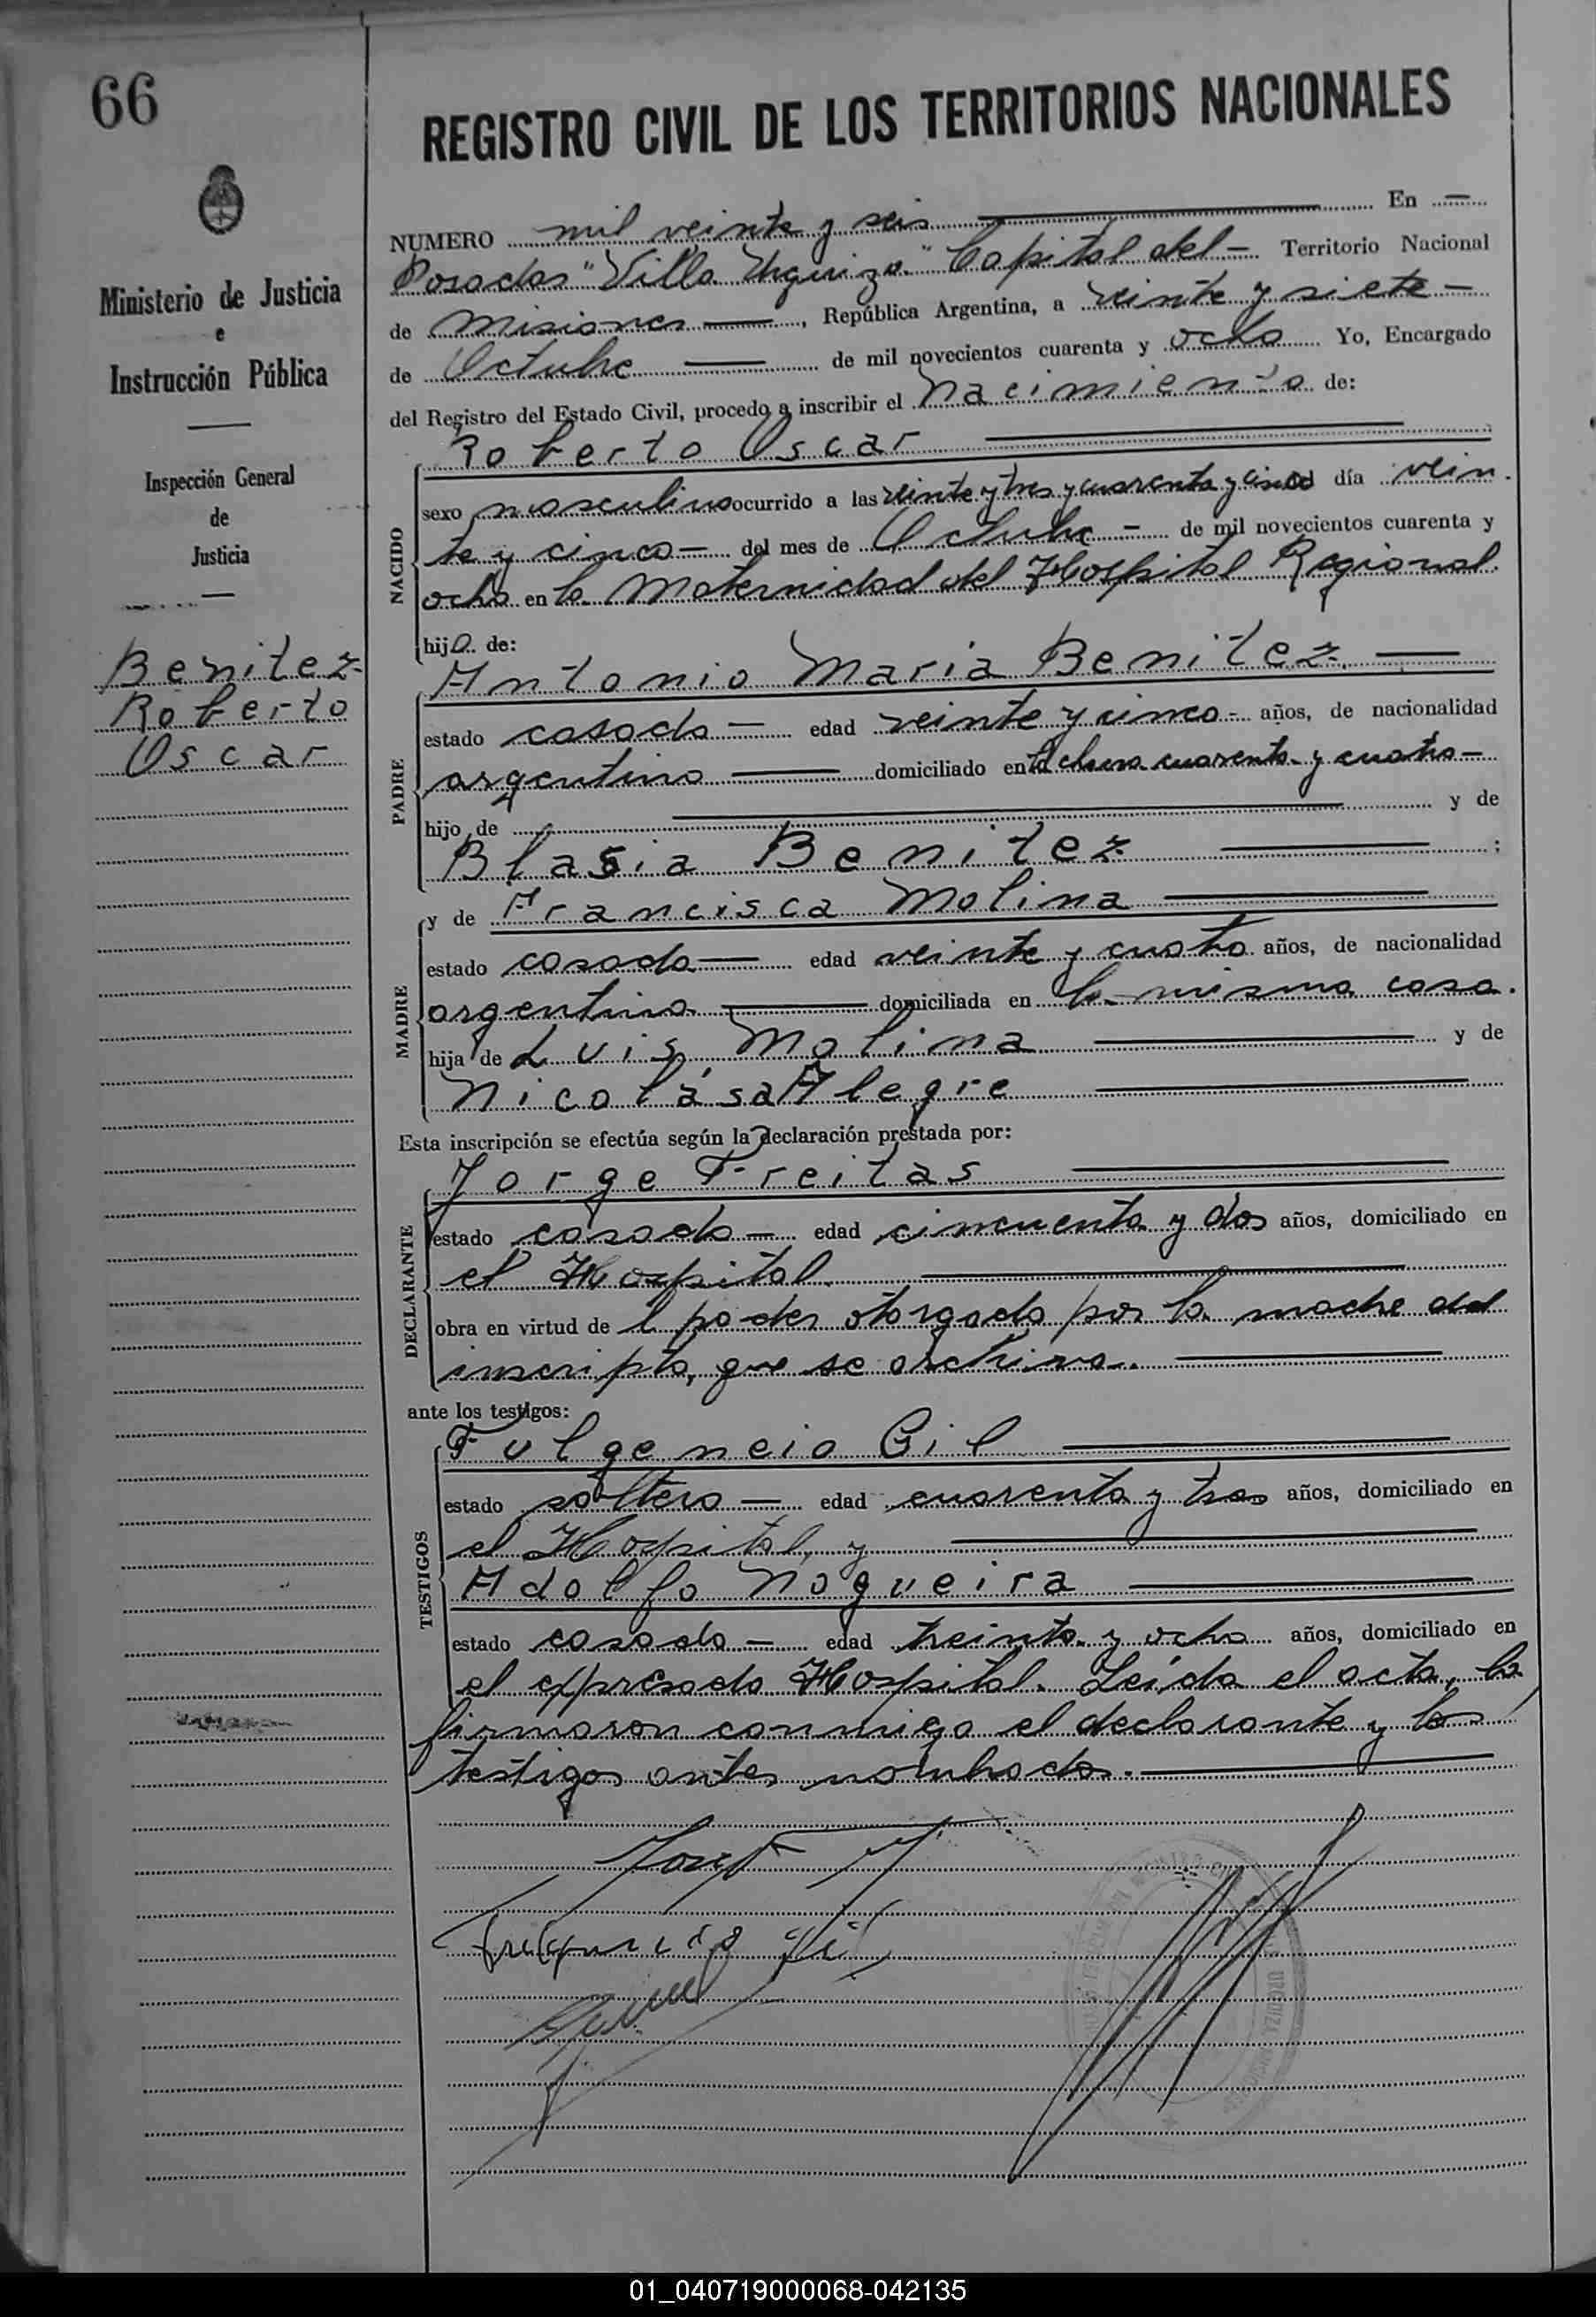 66
REGISTRO CIVIL DE LOS TERRITORIOS NACIONALES
Ministerio de Justicia
e
Instrucción Pública
Inspección General
de
Justicia
Benitez
Roberto
Oscar
NUMERO mil veinte y seis En
Posadas "Villa Urquiza" Capital del Territorio Nacional
de Misiones, República Argentina, a veinte y siete
de Octubre de mil novecientos cuarenta y ocho Yo, Encargado
del Registro del Estado Civil, procedo a inscribir el nacimiento de:
Roberto Oscar
NACIDO
sexo masculino ocurrido a las veinte y tres y cuarenta y cinco día vein
te y cinco del mes de Octubre de mil novecientos cuarenta y
ocho en la Maternidad del Hospital Regional.
hijo de:
Antonio Maria Benitez
PADRE
estado casado edad veinte y cinco años, de nacionalidad
argentino domiciliado en la chacra cuarenta y cuatro
hijo de y de
Blasia Benitez ;
y de Francisca Molina
MADRE
estado casada edad veinte y cuatro años, de nacionalidad
argentina domiciliada en la misma casa.
hija de Luis Molina y de
Nicolása Alegre
Esta inscripción se efectúa según la declaración prestada por:
Jorge Freitas
DECLARANTE
estado casado edad cincuenta y dos años, domiciliado en
el Hospital.
obra en virtud de l poder otorgado por la madre del
inscripto, que se archiva.
ante los testigos:
Fulgencio Gil
TESTIGOS
estado soltero edad cuarenta y tres años, domiciliado en
el Hospital, y
Adolfo Nogueira
estado casado edad treinta y ocho años, domiciliado en
el expresado Hospital. Leída el acta, la
firmaron conmigo el declarante y los
testigos antes nombrados.
Fulgencio Gil
URQUIZA
01_040719000068-042135